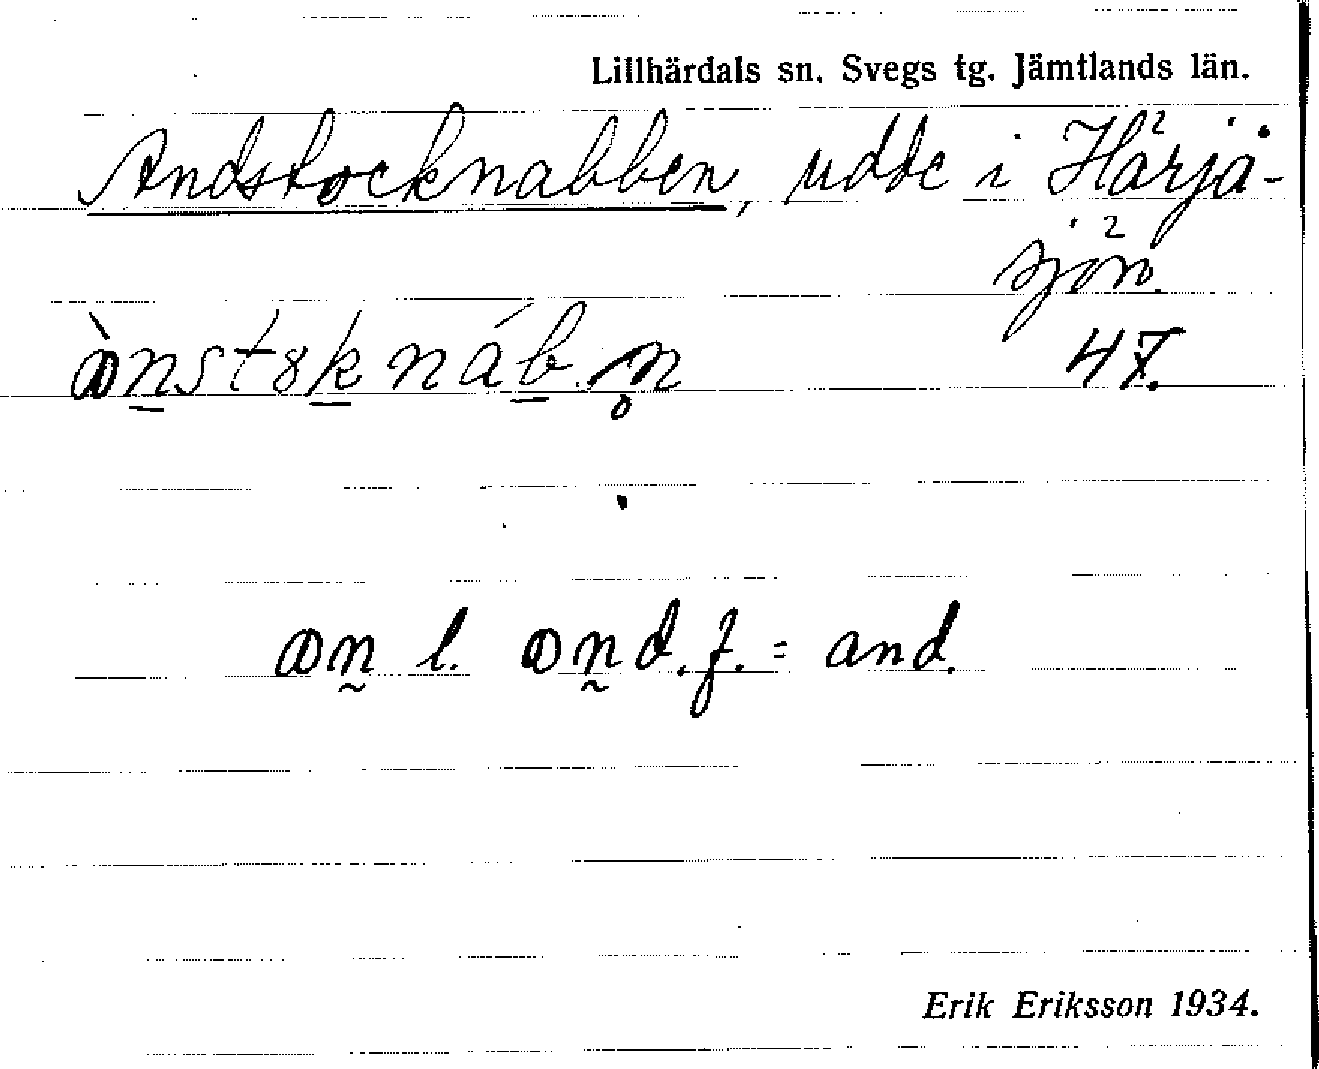 Lillhärdals sn. Svegs tg. Jämtlands län.
Andstocknabben, udde i Härjå-
sjön.
47.
l. f. = and.
Erik Eriksson 1934.